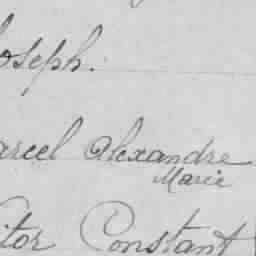 oseph.
arcel Alexandre
Marie
itor Constant